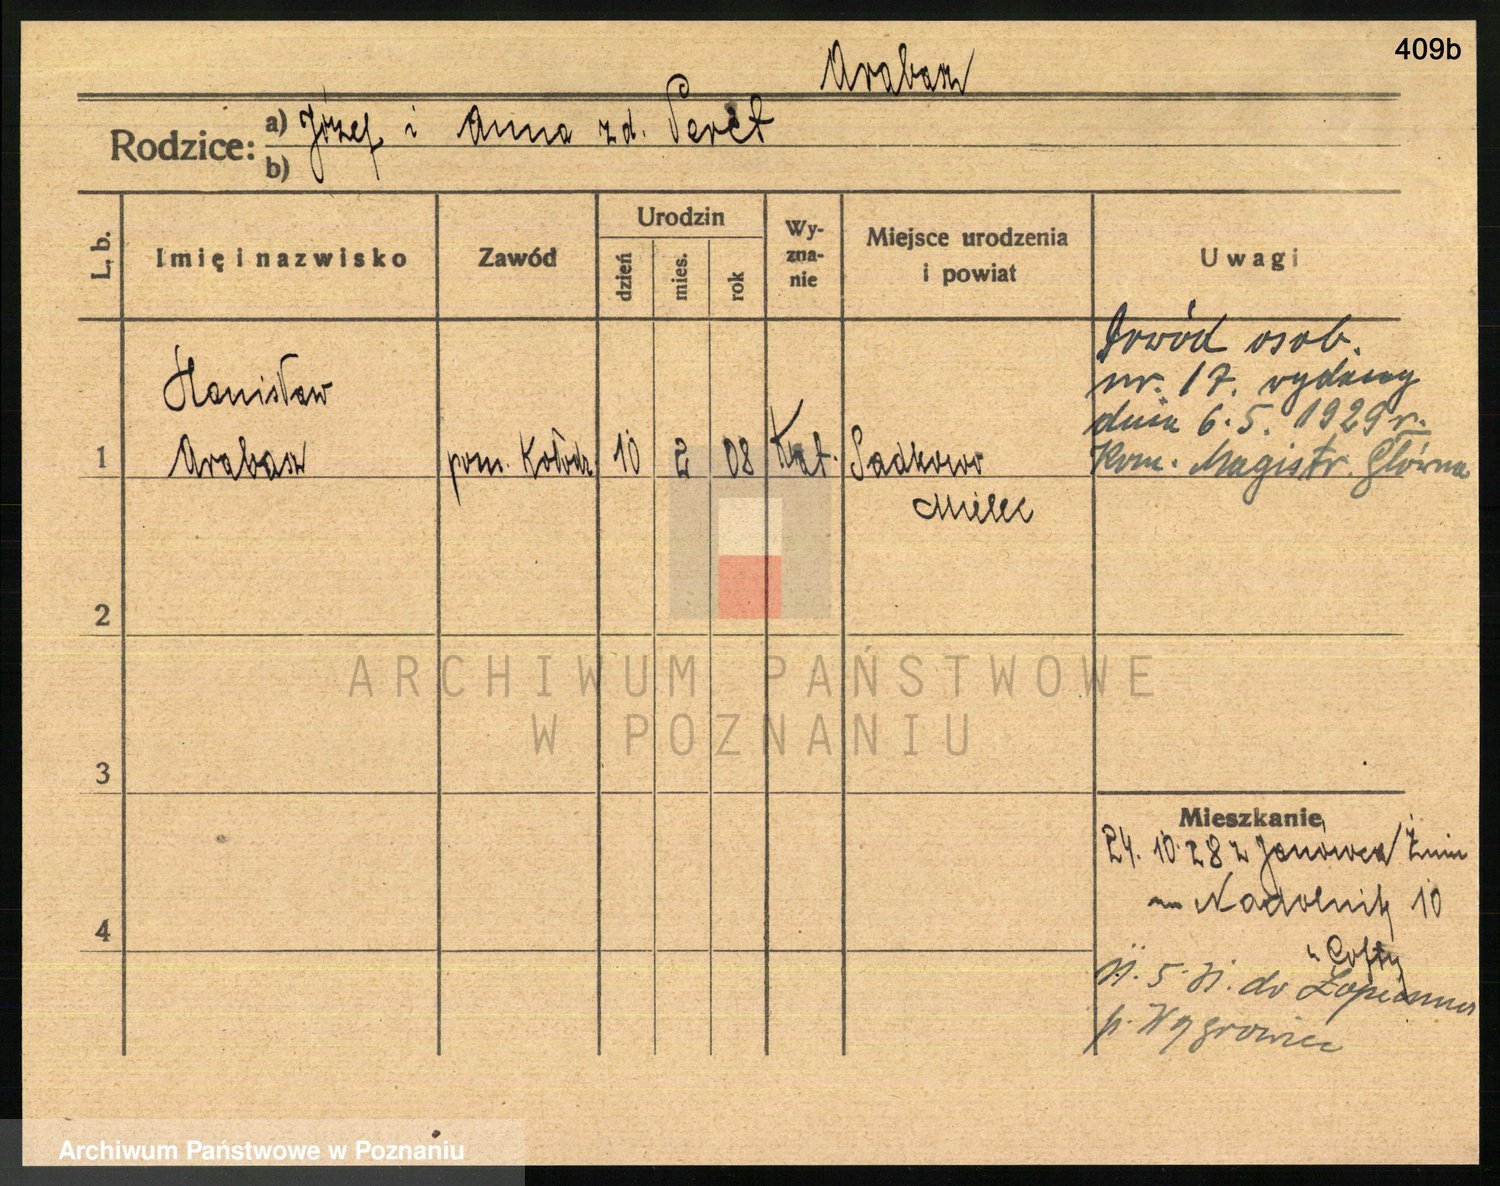 409b
Arabasz
Rodzice: a) Józef i Anna zd. Peret
b)
L. b.
Imię i nazwisko
Zawód
Urodzin
dzień
mies.
rok
Wy-
zna-
nie
Miejsce urodzenia
i powiat
Uwagi
Stanisław
1 Arabasz pom. Kołodz. 10 2 08 Kat. Sadkowo
Mielec
Dowód osob.
nr. 17. wydany
dnia 6.5.1929 r.
Kom. Magistr. Główna
2
3
4
Mieszkanie
24.10.28 z Janówca / Żnin
Nadolnik 10
do Łopienna
p. Wągrowiec
ARCHIWUM PAŃSTWOWE
W POZNANIU
Archiwum Państwowe w Poznaniu